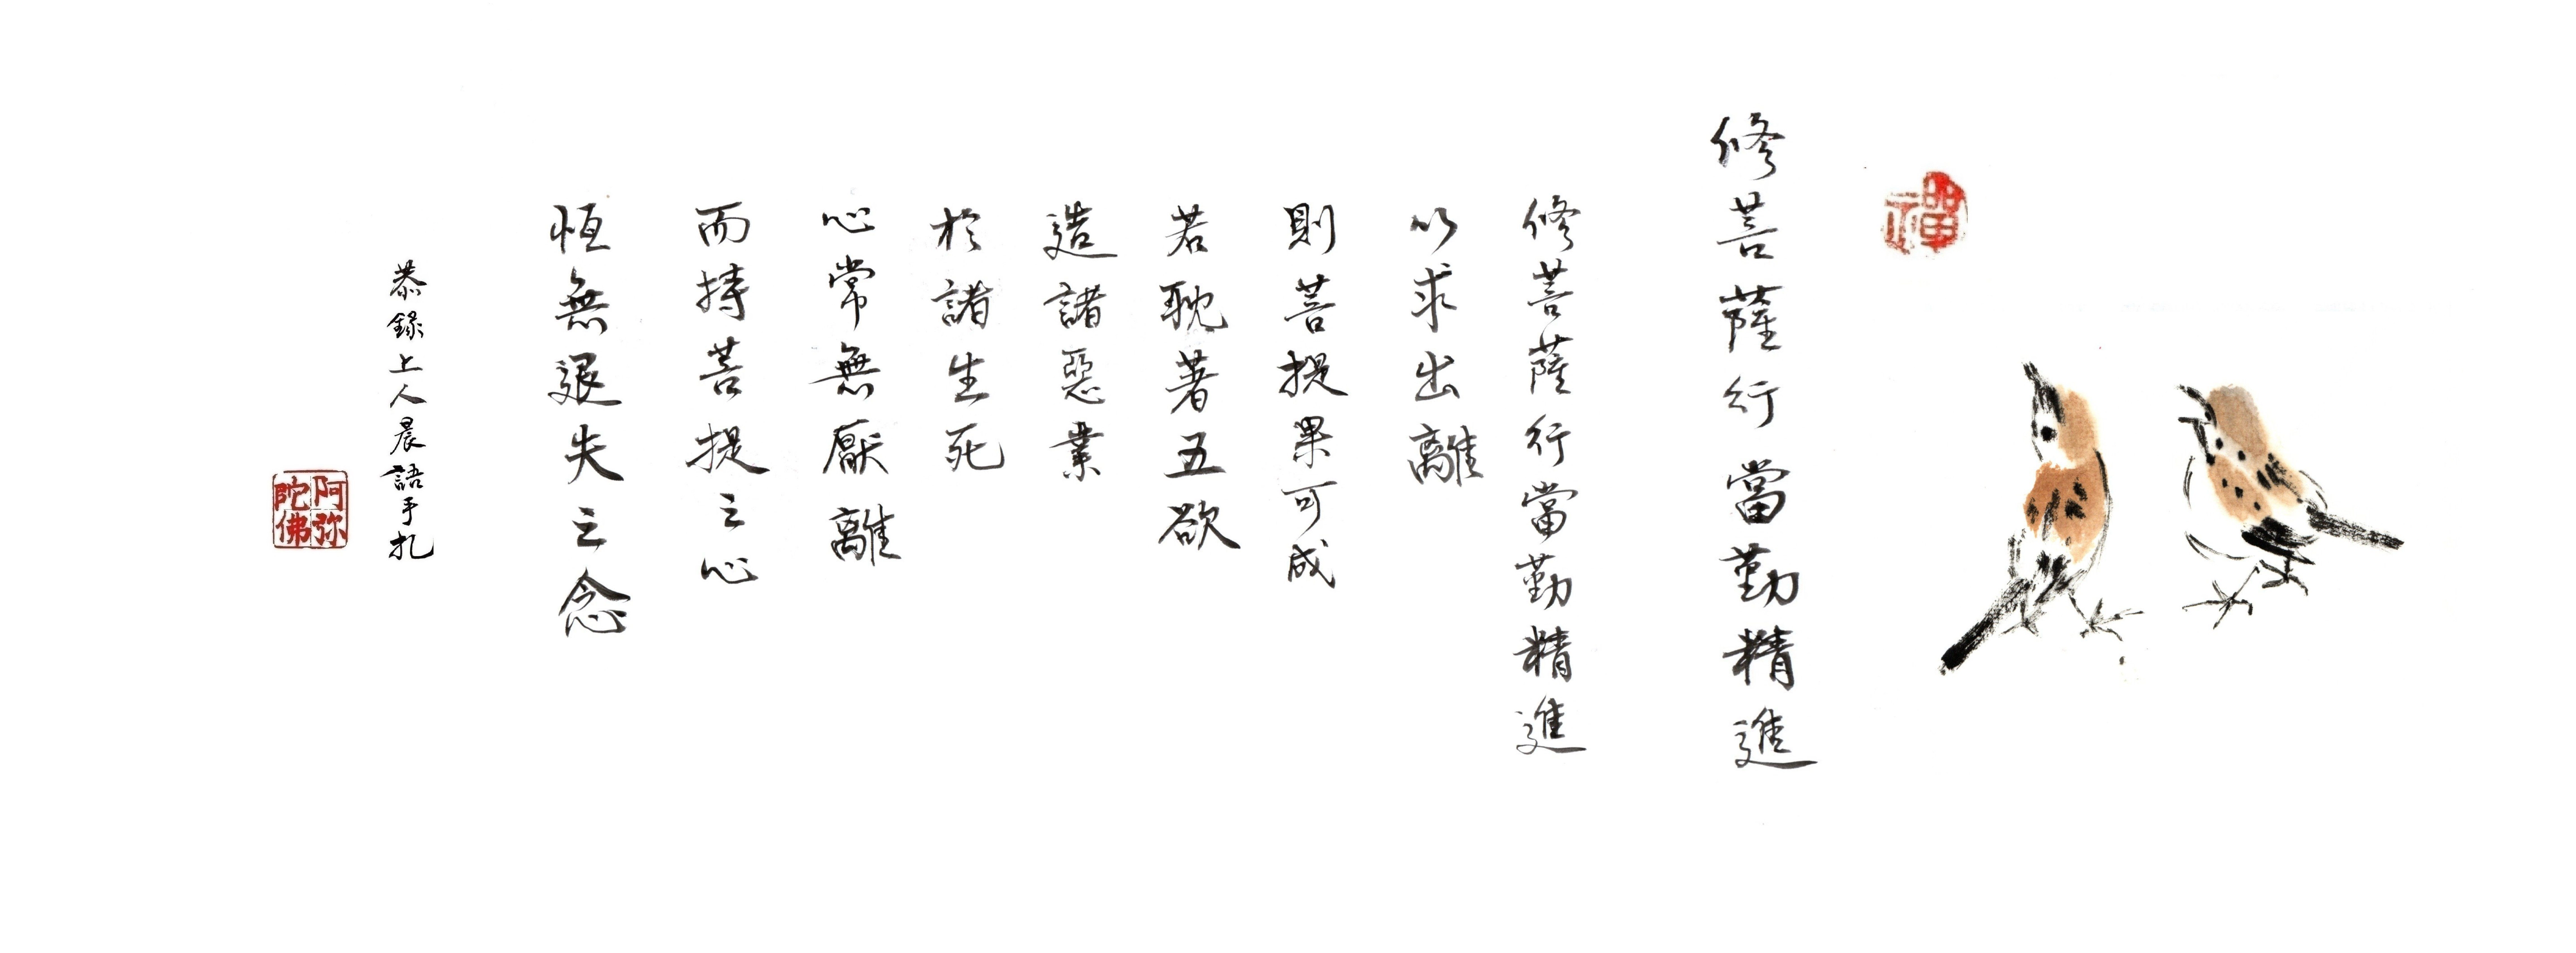 禪
修菩薩行當勤精進
修菩薩行當勤精進
以求出離
則菩提果可成
若耽著五欲
造諸惡業
於諸生死
心常無厭離
而持菩提之心
恆無退失之念
恭錄上人晨語手札
阿弥
陀佛